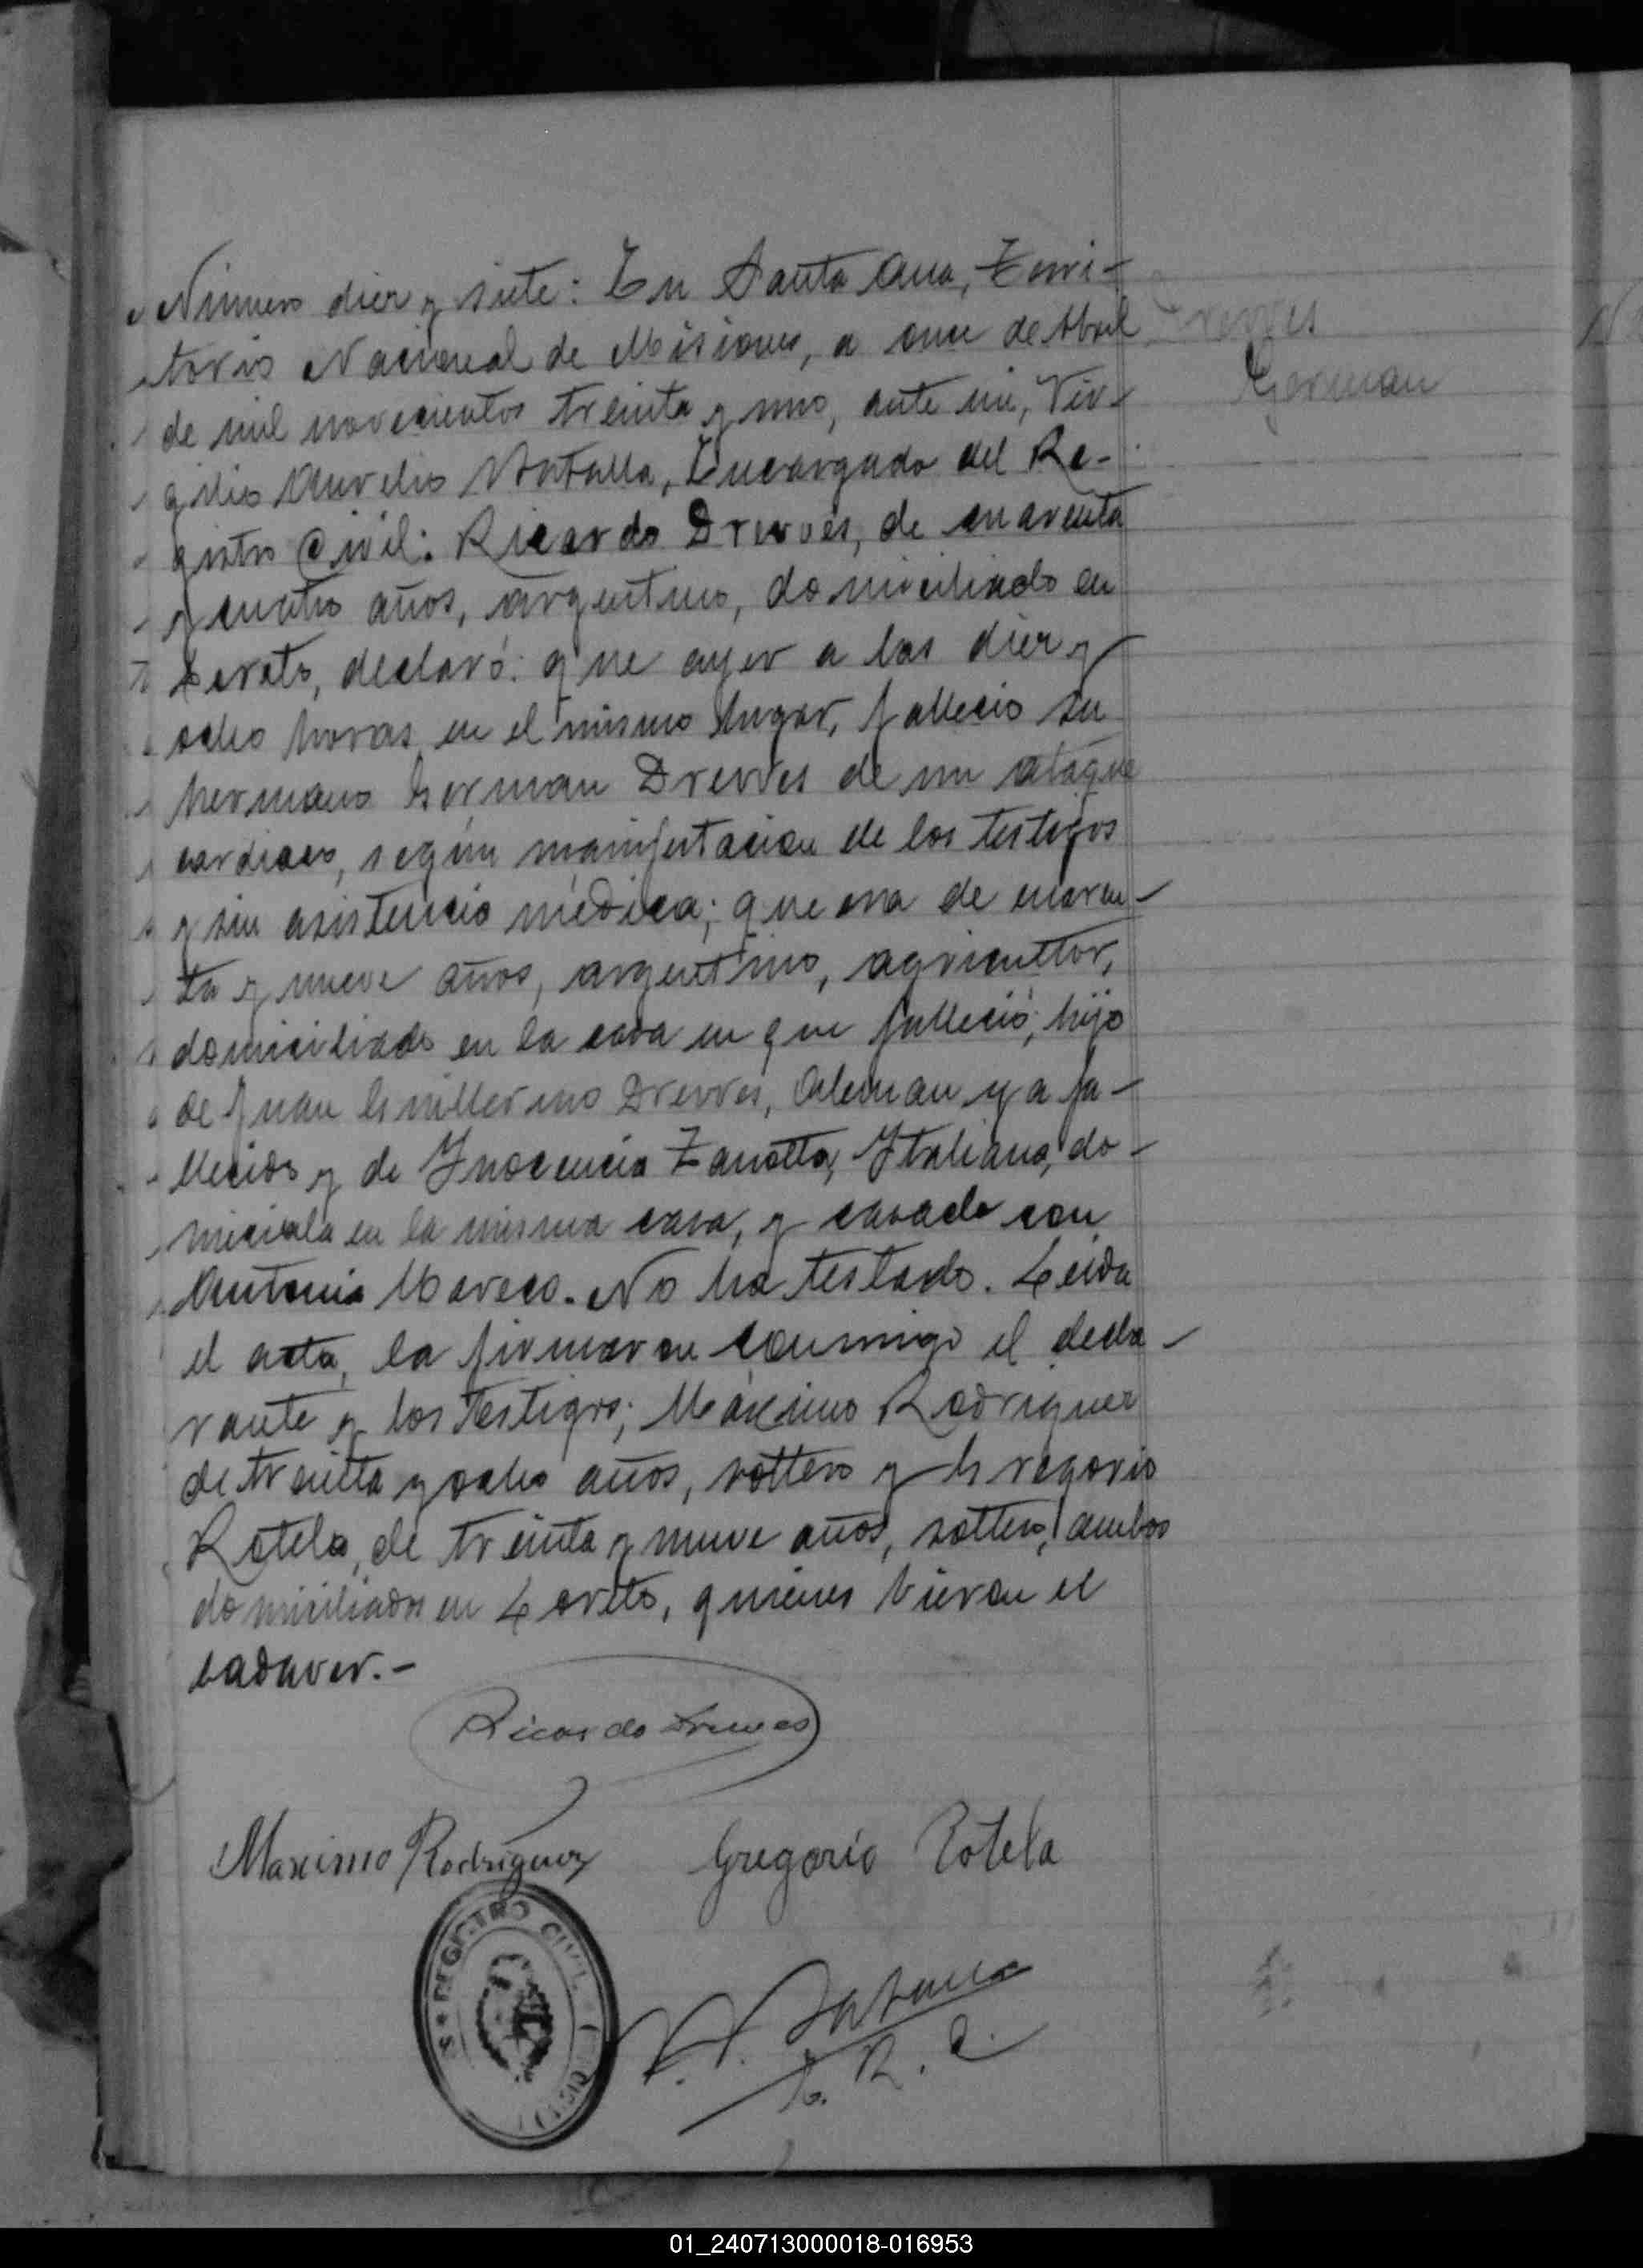 Número diez y siete: En Santa Ana, Terri-
torio Nacional de Misiones, a once de Abril
de mil novecientos treinta y uno, ante mi, Vir-
gilio Aurelio Batalla, Encargado del Re-
gistro Civil: Ricardo Drewes, de cuarenta
y cuatro años, argentino, domiciliado en
Loreto, declaró: que ayer a las diez y
ocho horas en el mismo lugar, fallecio su
hermano German Drewes de un ataque
cardiaco, según manifestacion de los testigos
y sin asistencia médica; que era de cuaren-
ta y nueve años, argentino, agricultor,
domiciliado en la casa en que falleció; hijo
de Juan Guillermo Drewes, Aleman ya fa-
llecido y de Inocencia Zanotta, Italiana, do-
miciala en la misma casa, y casado con
Antonia Mareco. No ha testado. Leida
el acta, la firmaron conmigo el decla-
rante y los testigos; Máximo Rodriguez
de treinta y ocho años, soltero y Gregorio
Rotela, de treinta y nueve años, soltero, ambos
domiciliados en Loreto, quienes vieron el
cadaver.-
Drewes
German
Ricardo Drewes
Maximo Rodriguez Gregorio Rotela
REGISTRO CIVIL
V. A. Batalla
E. R. C.
01_240713000018-016953